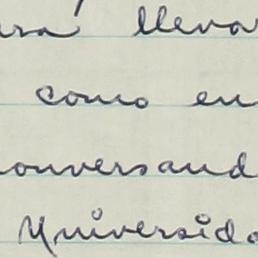 ara llevar
como en
onversand
Universida